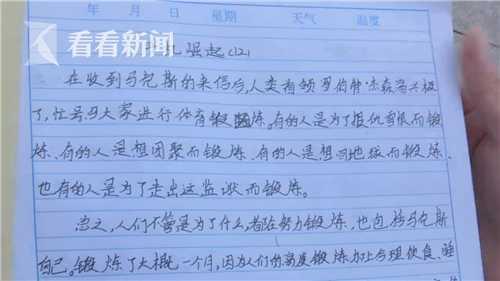 年 月 日 星期 天气 温度
看看新闻
崛起(12)
在收到马克斯的来信后,人类首领罗伯特杰森高兴极
了,忙号召大家进行体育锻炼。有的人是为了报仇雪恨而锻
炼、有的人是想团聚而锻炼、有的人是想回地球而锻炼、
也有的人是为了走出这监狱而锻炼。
总之,人们不管是为了什么,都在努力锻炼,也包括马克斯
自己。锻炼了大概一个月,因为人们的高度锻炼加上合理饮食、睡